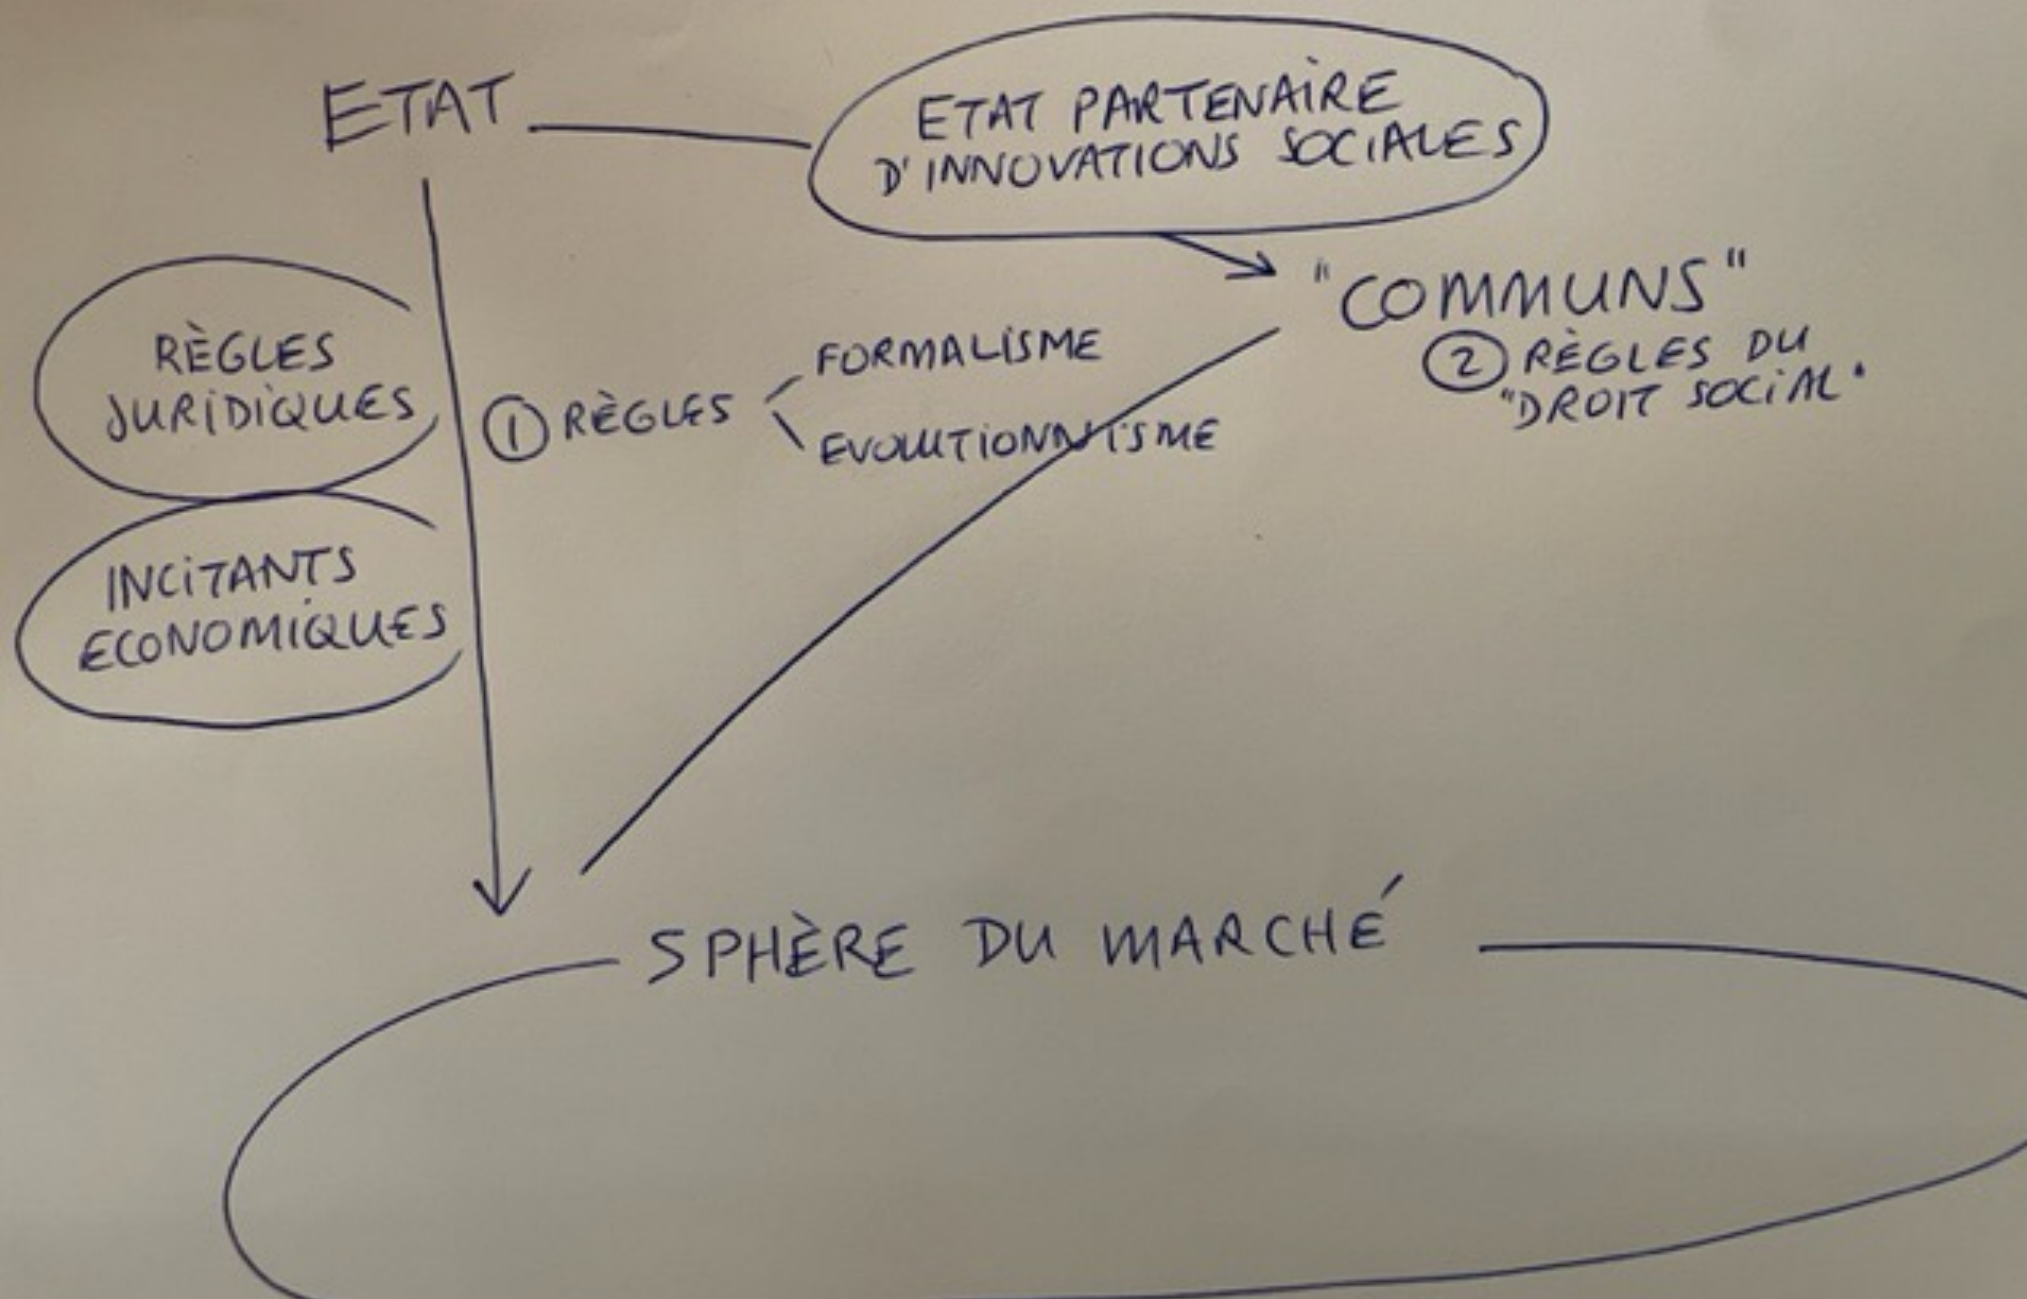 ETAT
ETAT PARTENAIRE
D'INNOVATIONS SOCIALES
"COMMUNS"
② RÈGLES DU
"DROIT SOCIAL"
RÈGLES
JURIDIQUES
① RÈGLES
FORMALISME
EVOLUTIONNISME
INCITANTS
ECONOMIQUES
SPHÈRE DU MARCHÉ